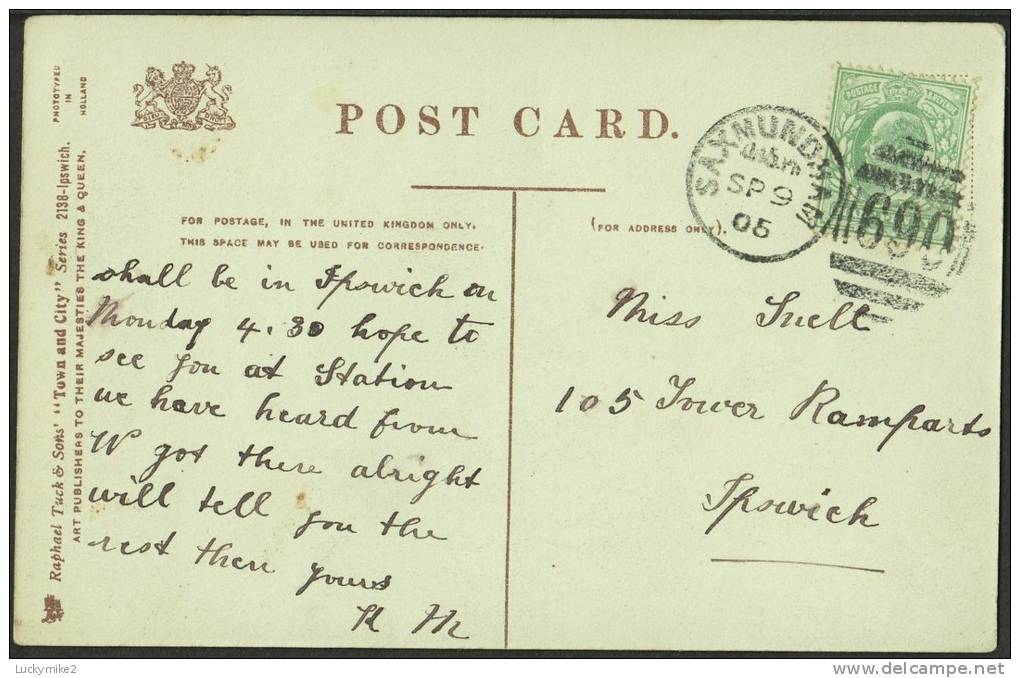 POST CARD.
PHOTOTYPED
IN
HOLLAND
Raphael Tuck & Sons' "Town and City" Series 2138-Ipswich.
ART PUBLISHERS TO THEIR MAJESTIES THE KING & QUEEN.
FOR POSTAGE, IN THE UNITED KINGDOM ONLY,
THIS SPACE MAY BE USED FOR CORRESPONDENCE.
(FOR ADDRESS ONLY).
SAXMUNDHAM
SP 9
05
690
POSTAGE
shall be in Ipswich on
Monday 4.30 hope to
see you at Station
we have heard from
W got there alright
will tell you the
rest then yours
Miss Snell
105 Tower Ramparts
Ipswich
Luckymike2
delcampe.net